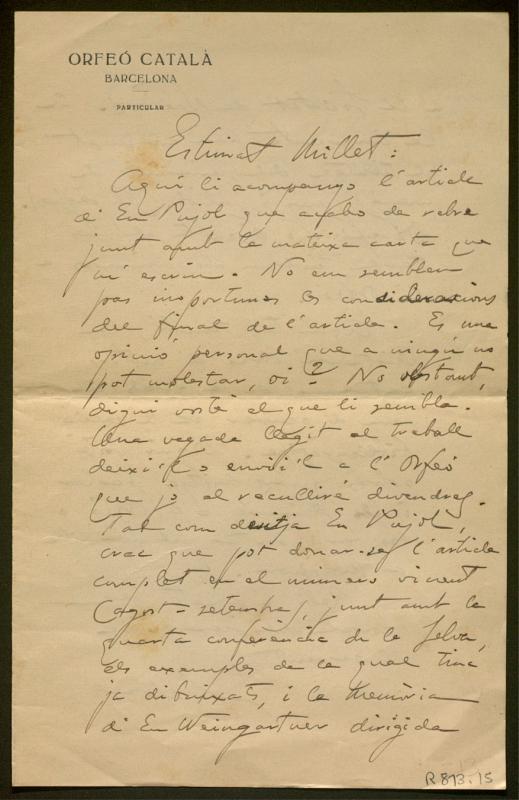 ORFEÓ CATALÀ
BARCELONA
PARTICULAR
Estimat Millet:
Aquí li acompanyo l'article
d'En Pujol que acabo de rebre
junt amb la mateixa carta que
m'escriu. No em semblen
pas inoportunes les consideracions
del final de l'article. Es una
opinió personal que a ningú no
pot molestar, oi? No obstant,
digui vostè el que li sembla.
Una vegada llegit el treball
deixi'l o enviï'l a l'Orfeó
que jo el recullirè divendres.
Tal com desitja En Pujol,
crec que pot donar-se l'article
complet en el número vinent
(agost-setembre), junt amb la
quarta conferència de la Selva,
els exemples de la qual tinc
ja dibuixats, i la Memòria
d'En Weingartner dirigida
R 873.15